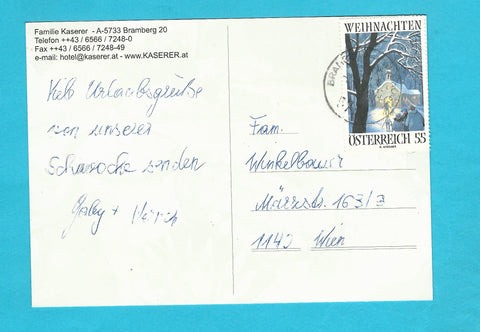 Familie Kaserer - A-5733 Bramberg 20
Telefon ++43 / 6566 / 7248-0
Fax ++43 / 6566 / 7248-49
e-mail: hotel@kaserer.at - www.KASERER.at
WEIHNACHTEN
ÖSTERREICH 55
Urlaubsgrüße
von unserer
senden
Gaby +
Fam.
Winkelbauer
Märzstr. 163/3
1140 Wien